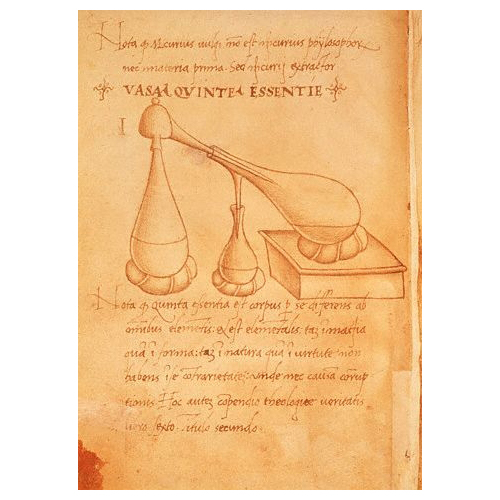 Nota q Mcurius vulgi nõ est mcurius phylosophor
nec materia prima. Sed mcurij extractor
VASA QVINTE ESSENTIE
I
Nota q Quinta esentia est corpus p se differens ab
omnibus elementis: et est elementalis: taz i materia
qua i forma: taz i natura qua i virtute non
habens i se cõtrarietate: unde nec causa corrup
tionis Hoc autez cõpendio theologice veritatis
libro sexto titulo secundo.